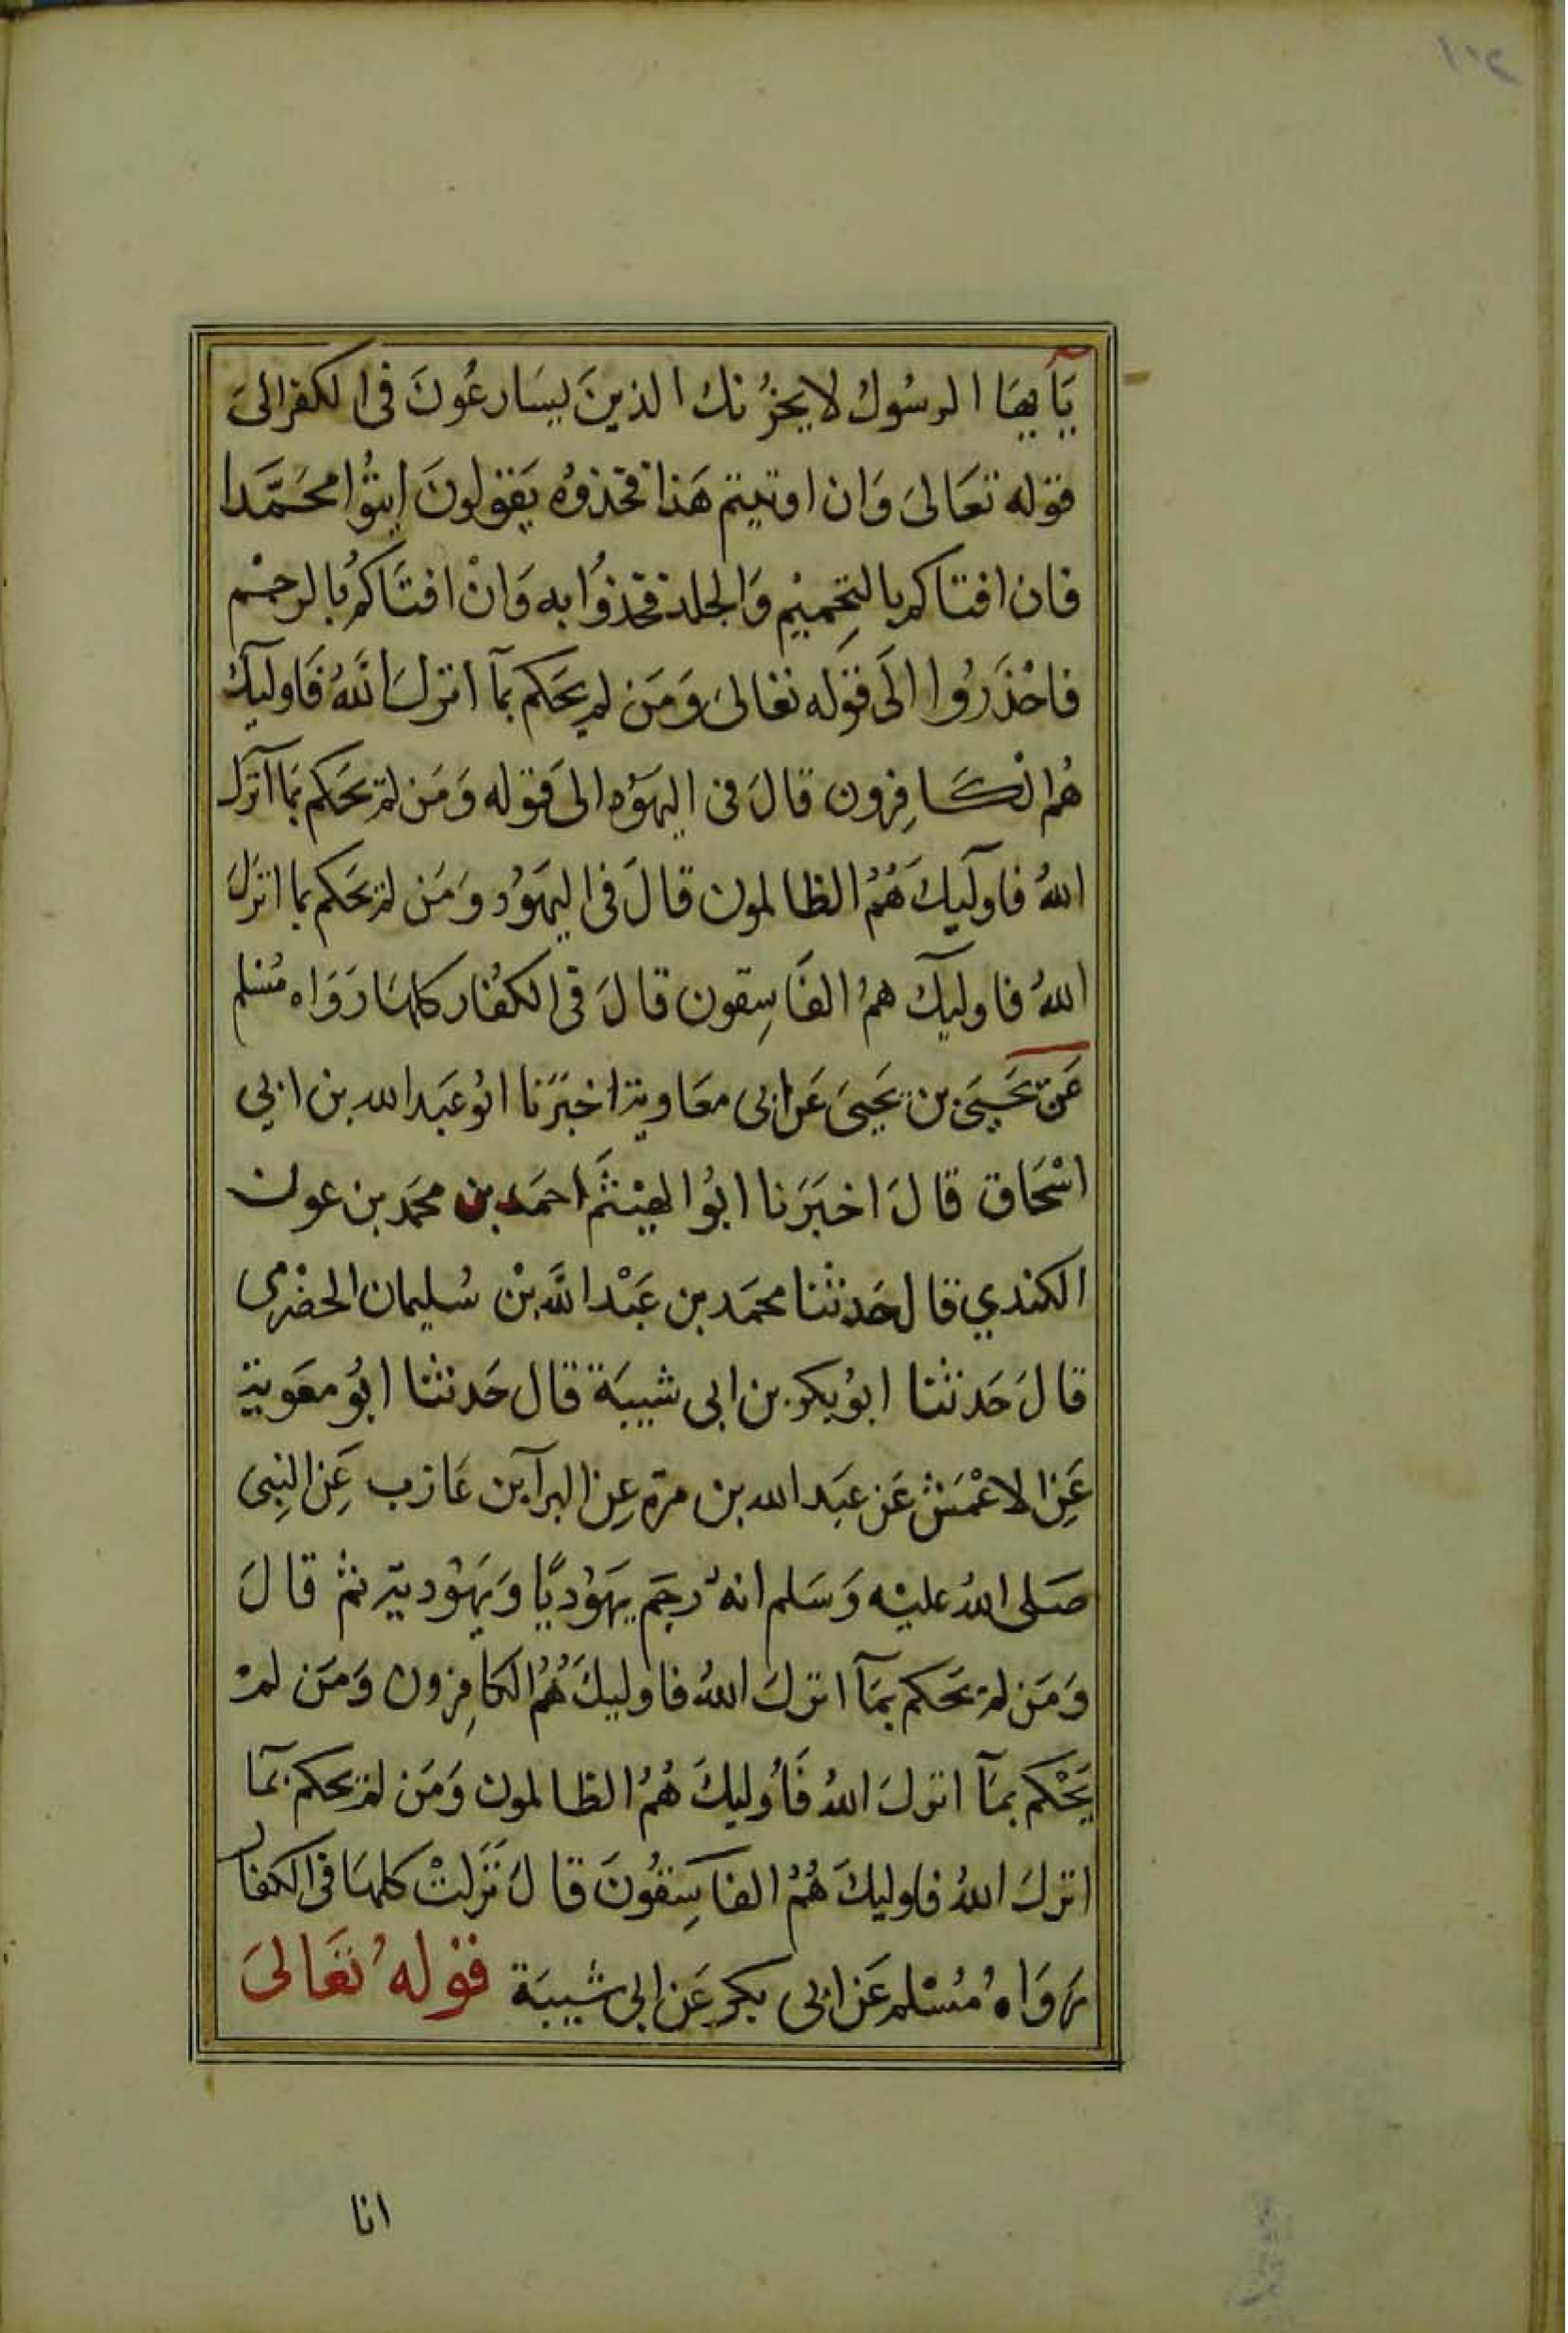 ١١٢
يَآيهَا الرسُولُ لا يحزُنك الذينَ يسَارعُونَ فى الكفر الىَ
قوله تعَالىَ وَان اوتيتم هَذا فخذوُه يَقولونَ ايتُوا محَمَّدا
فان افتاكم بالتحِميْم وَالجلد فخذوُا به وَانْ افتَاكمُ بالرجْم
فاحْذَرُوا الَى قوَله تعَالىَ وَمَن لم يحَكم بمآ انزلَ اللهُ فَاوليٓكَ
هُم الكَافِرون قالَ فى اليهَوُد الىَ قوَله وَمَن لم يحَكم بمَا انزَل
اللهُ فاوليٓكَ هُمُ الظالمون قالَ فى اليهَوُد وَمَن لم يحَكم بما انزَلَ
اللهُ فاوليٓكَ همُ الفَاسِقون قالَ فى الكفُار كلهَا رَوَاه مُسْلم
عَن يَحيىَ بن يَحيىَ عَن ابى معَاوية اخبَرَنا ابُو عَبد الله بن ابي
اسْحَاق قالَ اخبَرَنا ابُوا الهيْثَم احمَد بن محمَد بن عون
الكندي قال حَدثنا محمَد بن عَبْد اللَّه بْن سُليمان الحضْرمى
قالَ حَدثنا ابوُ بكر بن ابى شيبَة قال حَدثنا ابُو معَوية
عَنِ الاعْمَش عَن عبَد الله بن مرة عِن البرآ بن عَازب عَِن النِبى
صَلى اللهُ عليْه وَسَلم انهُ رجَم يهَوُديًّا وَيهَوُدية ثمُ قالَ
وَمَن لم يحَكم بمَآ انزلَ اللهُ فاوليكَ هُمُ الكافِرون وَمَن لمْ
يَحْكم بمَآ انزلَ اللهُ فَأوليكَ هُمُ الظالمون وَمَن لم يحكم بمَآ
انزلَ اللهُ فاوليكَ هُمُ الفاسِقوُنَ قالَ نَزَلتْ كلهَا فى الكفار
رَوَاهُ مُسْلم عَن ابى بكر عَن ابى شيبَة قوْلهُ تعَالىَ
انا